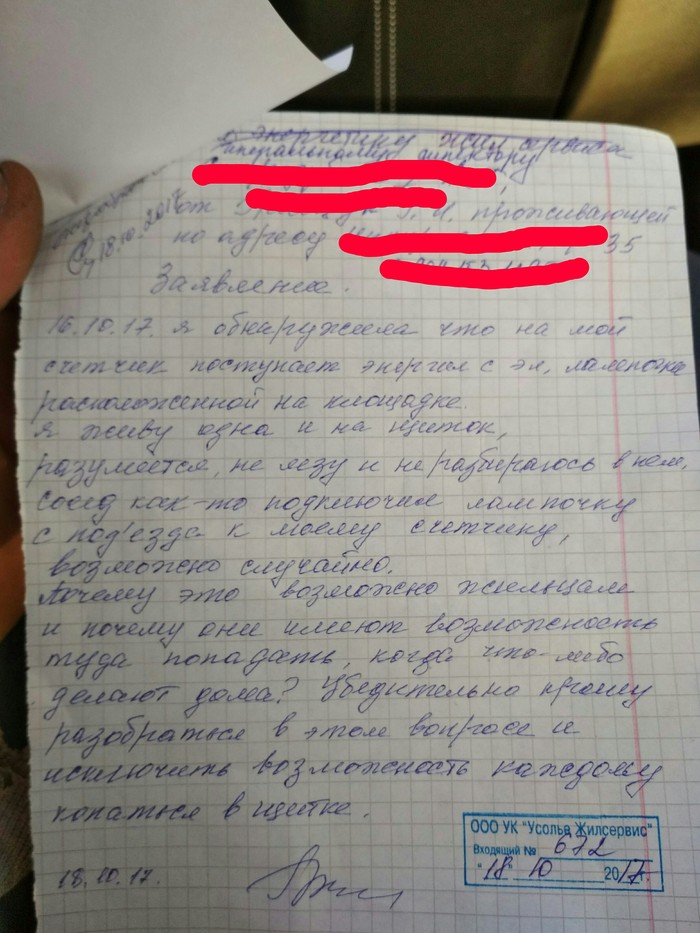 генеральному
от Г. И. проживающей
18.10.2017
по адресу 35
Заявление.
16.10.17. я обнаружила что на мой
счетчик поступает энергия с эл. лампочки
расположенной на площадке.
я живу одна и на щиток,
разумеется, не лезу и не разбираюсь в нем,
сосед как-то подключил лампочку
с под'езда к моему счетчику,
возможно случайно.
Почему это возможно жильцам
и почему они имеют возможность
туда попадать, когда что-либо
делают дома? Убедительно прошу
разобраться в этом вопросе и
исключить возможность каждому
копаться в щитке.
ООО УК "Усолье Жилсервис"
Входящий № 672
"18" 10 2017г.
18.10.17.